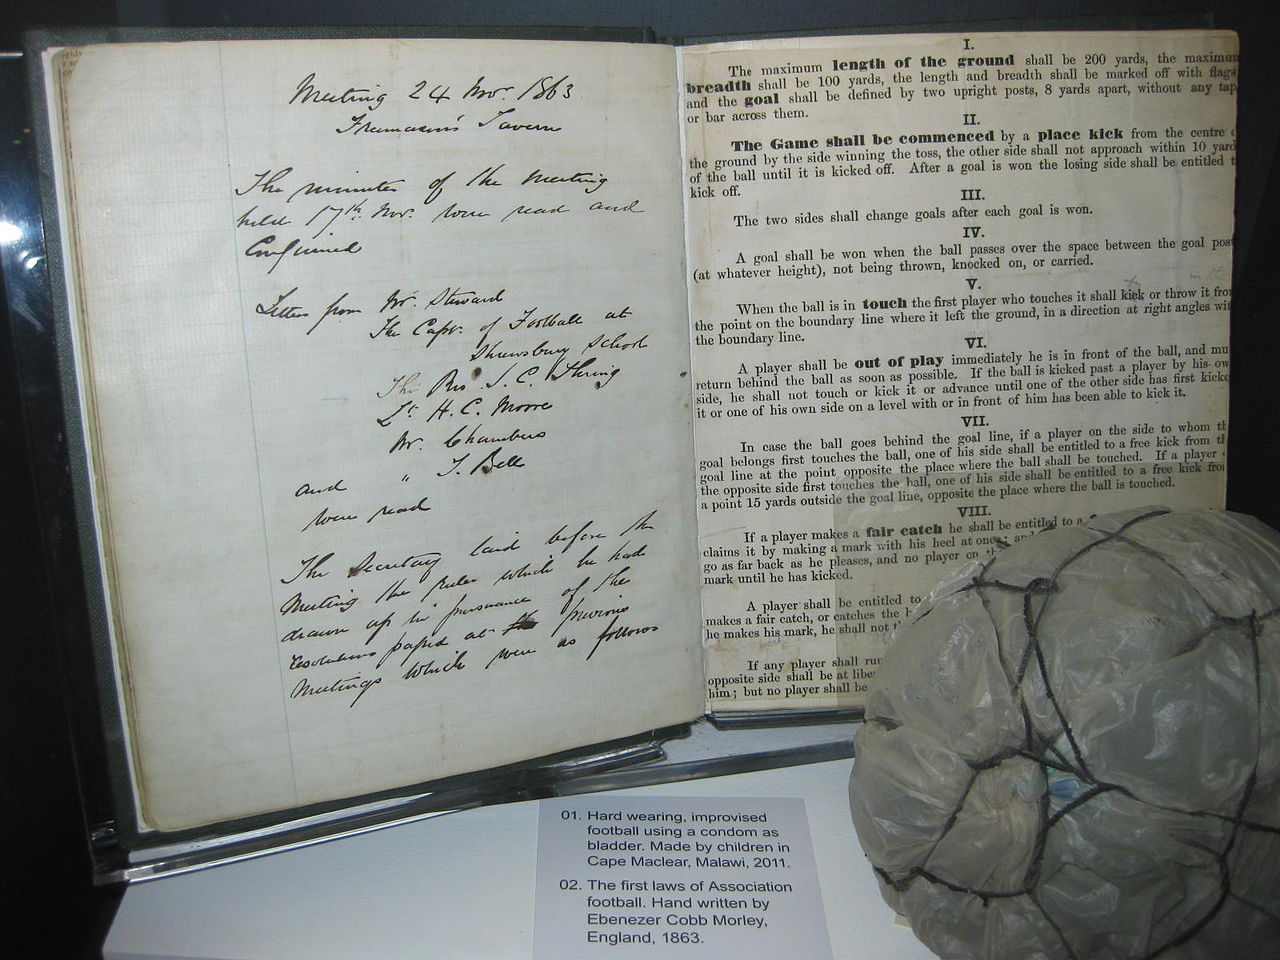 Meeting 24 Nov. 1863
Freemason's Tavern
The minutes of the Meeting
held 17th Nov. were read and
Confirmed
Letters from Mr. Steward
The Capt. of Football at
Shrewsbury School
The Rev. J. C. Thring
Lt. H. C. Moore
Mr. Chambers
and " J. Bell
were read
The Secretary laid before the
Meeting the Rules which he had
drawn up in pursuance of the
resolutions passed at the previous
Meetings which were as follows
I.
The maximum length of the ground shall be 200 yards, the maximum
breadth shall be 100 yards, the length and breadth shall be marked off with flags
and the goal shall be defined by two upright posts, 8 yards apart, without any
or bar across them.
II.
The Game shall be commenced by a place kick from the centre
the ground by the side winning the toss, the other side shall not approach within 10
of the ball until it is kicked off. After a goal is won the losing side shall be entitled
kick off.
III.
The two sides shall change goals after each goal is won.
IV.
A goal shall be won when the ball passes over the space between the goal
(at whatever height), not being thrown, knocked on, or carried.
V.
When the ball is in touch the first player who touches it shall kick or throw it
the point on the boundary line where it left the ground, in a direction at right angles
the boundary line.
VI.
A player shall be out of play immediately he is in front of the ball, and
return behind the ball as soon as possible. If the ball is kicked past a player by his
side, he shall not touch or kick it or advance until one of the other side has first
it or one of his own side on a level with or in front of him has been able to kick it.
VII.
In case the ball goes behind the goal line, if a player on the side to whom
goal belongs first touches the ball, one of his side shall be entitled to a free kick from
goal line at the point opposite the place where the ball shall be touched. If a player
the opposite side first touches the ball, one of his side shall be entitled to a free kick
a point 15 yards outside the goal line, opposite the place where the ball is touched.
VIII.
If a player makes a fair catch he shall be entitled to a
claims it by making a mark with his heel at once; and
go as far back as he pleases, and no player on
mark until he has kicked.
A player shall be entitled to
makes a fair catch, or catches the
he makes his mark, he shall not
If any player shall run
opposite side shall be at
him; but no player shall be
01. Hard wearing, improvised
football using a condom as
bladder. Made by children in
Cape Maclear, Malawi, 2011.
02. The first laws of Association
football. Hand written by
Ebenezer Cobb Morley,
England, 1863.